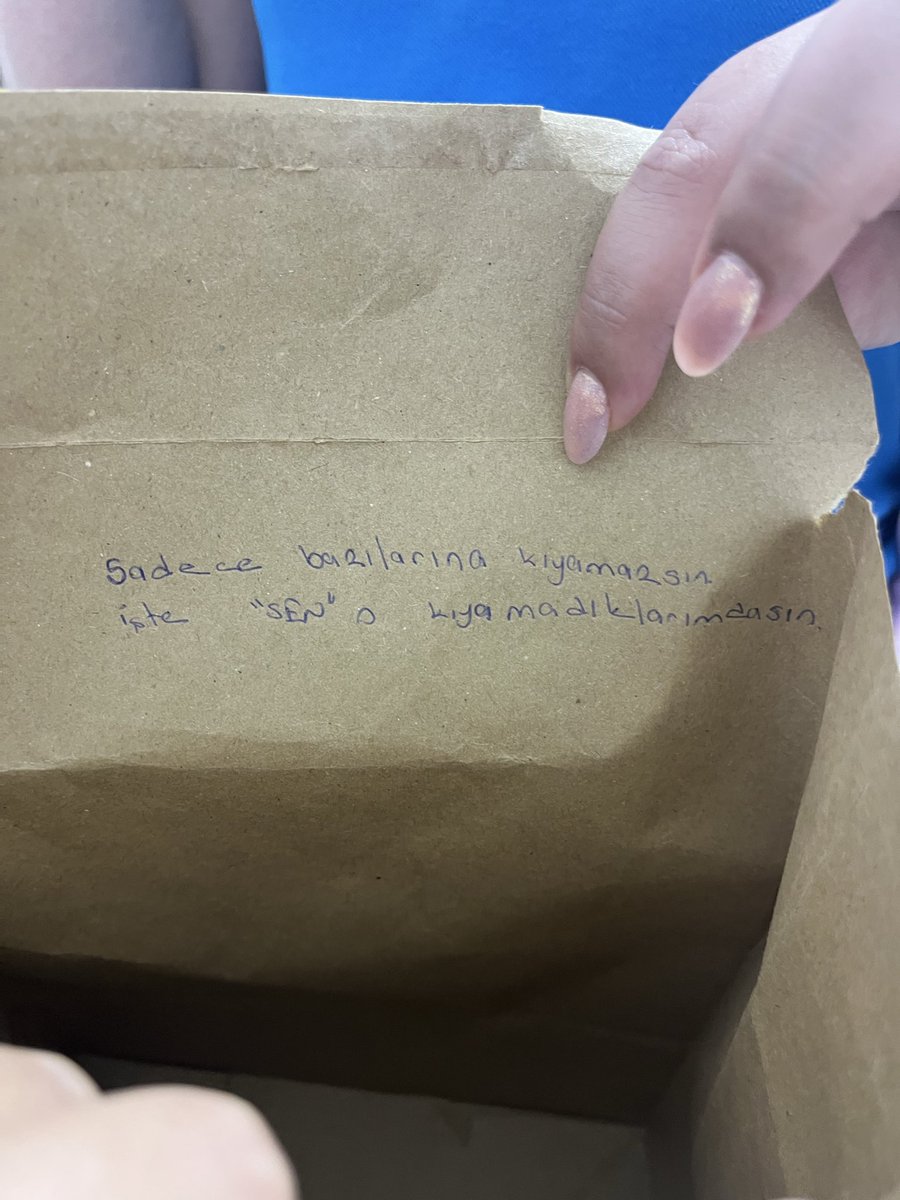 Sadece bazılarına kıyamazsın
işte "SEN" o kıyamadıklarımdasın.